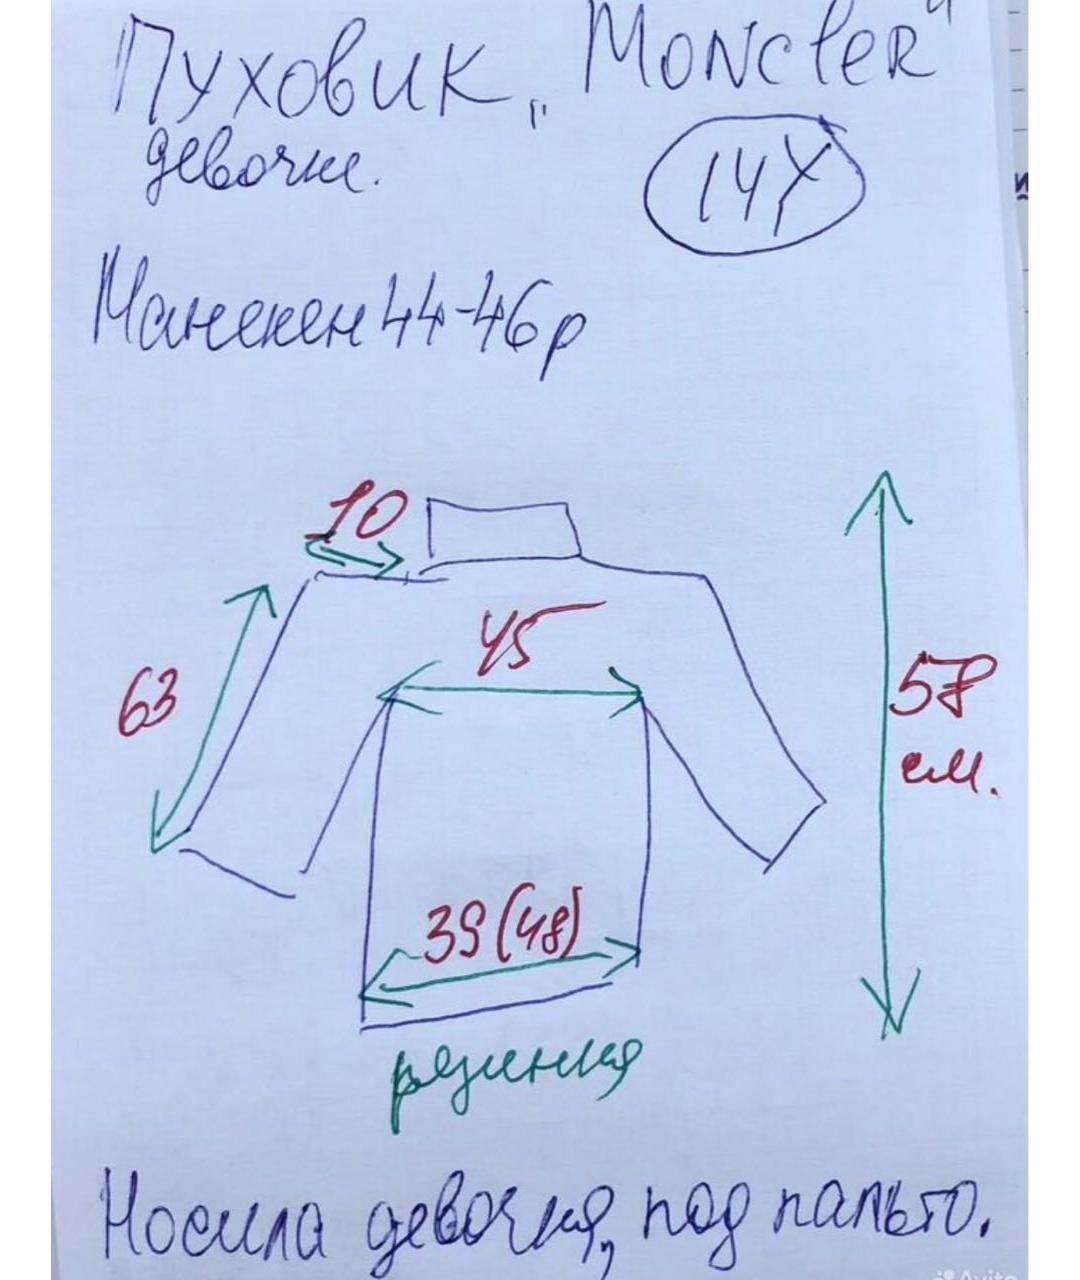 Пуховик „Moncler“
девочке.
14Y
Манекен 44-46р
10
45
63
58
см.
39 (48)
резинка
Носила девочка, под пальто.
Avito